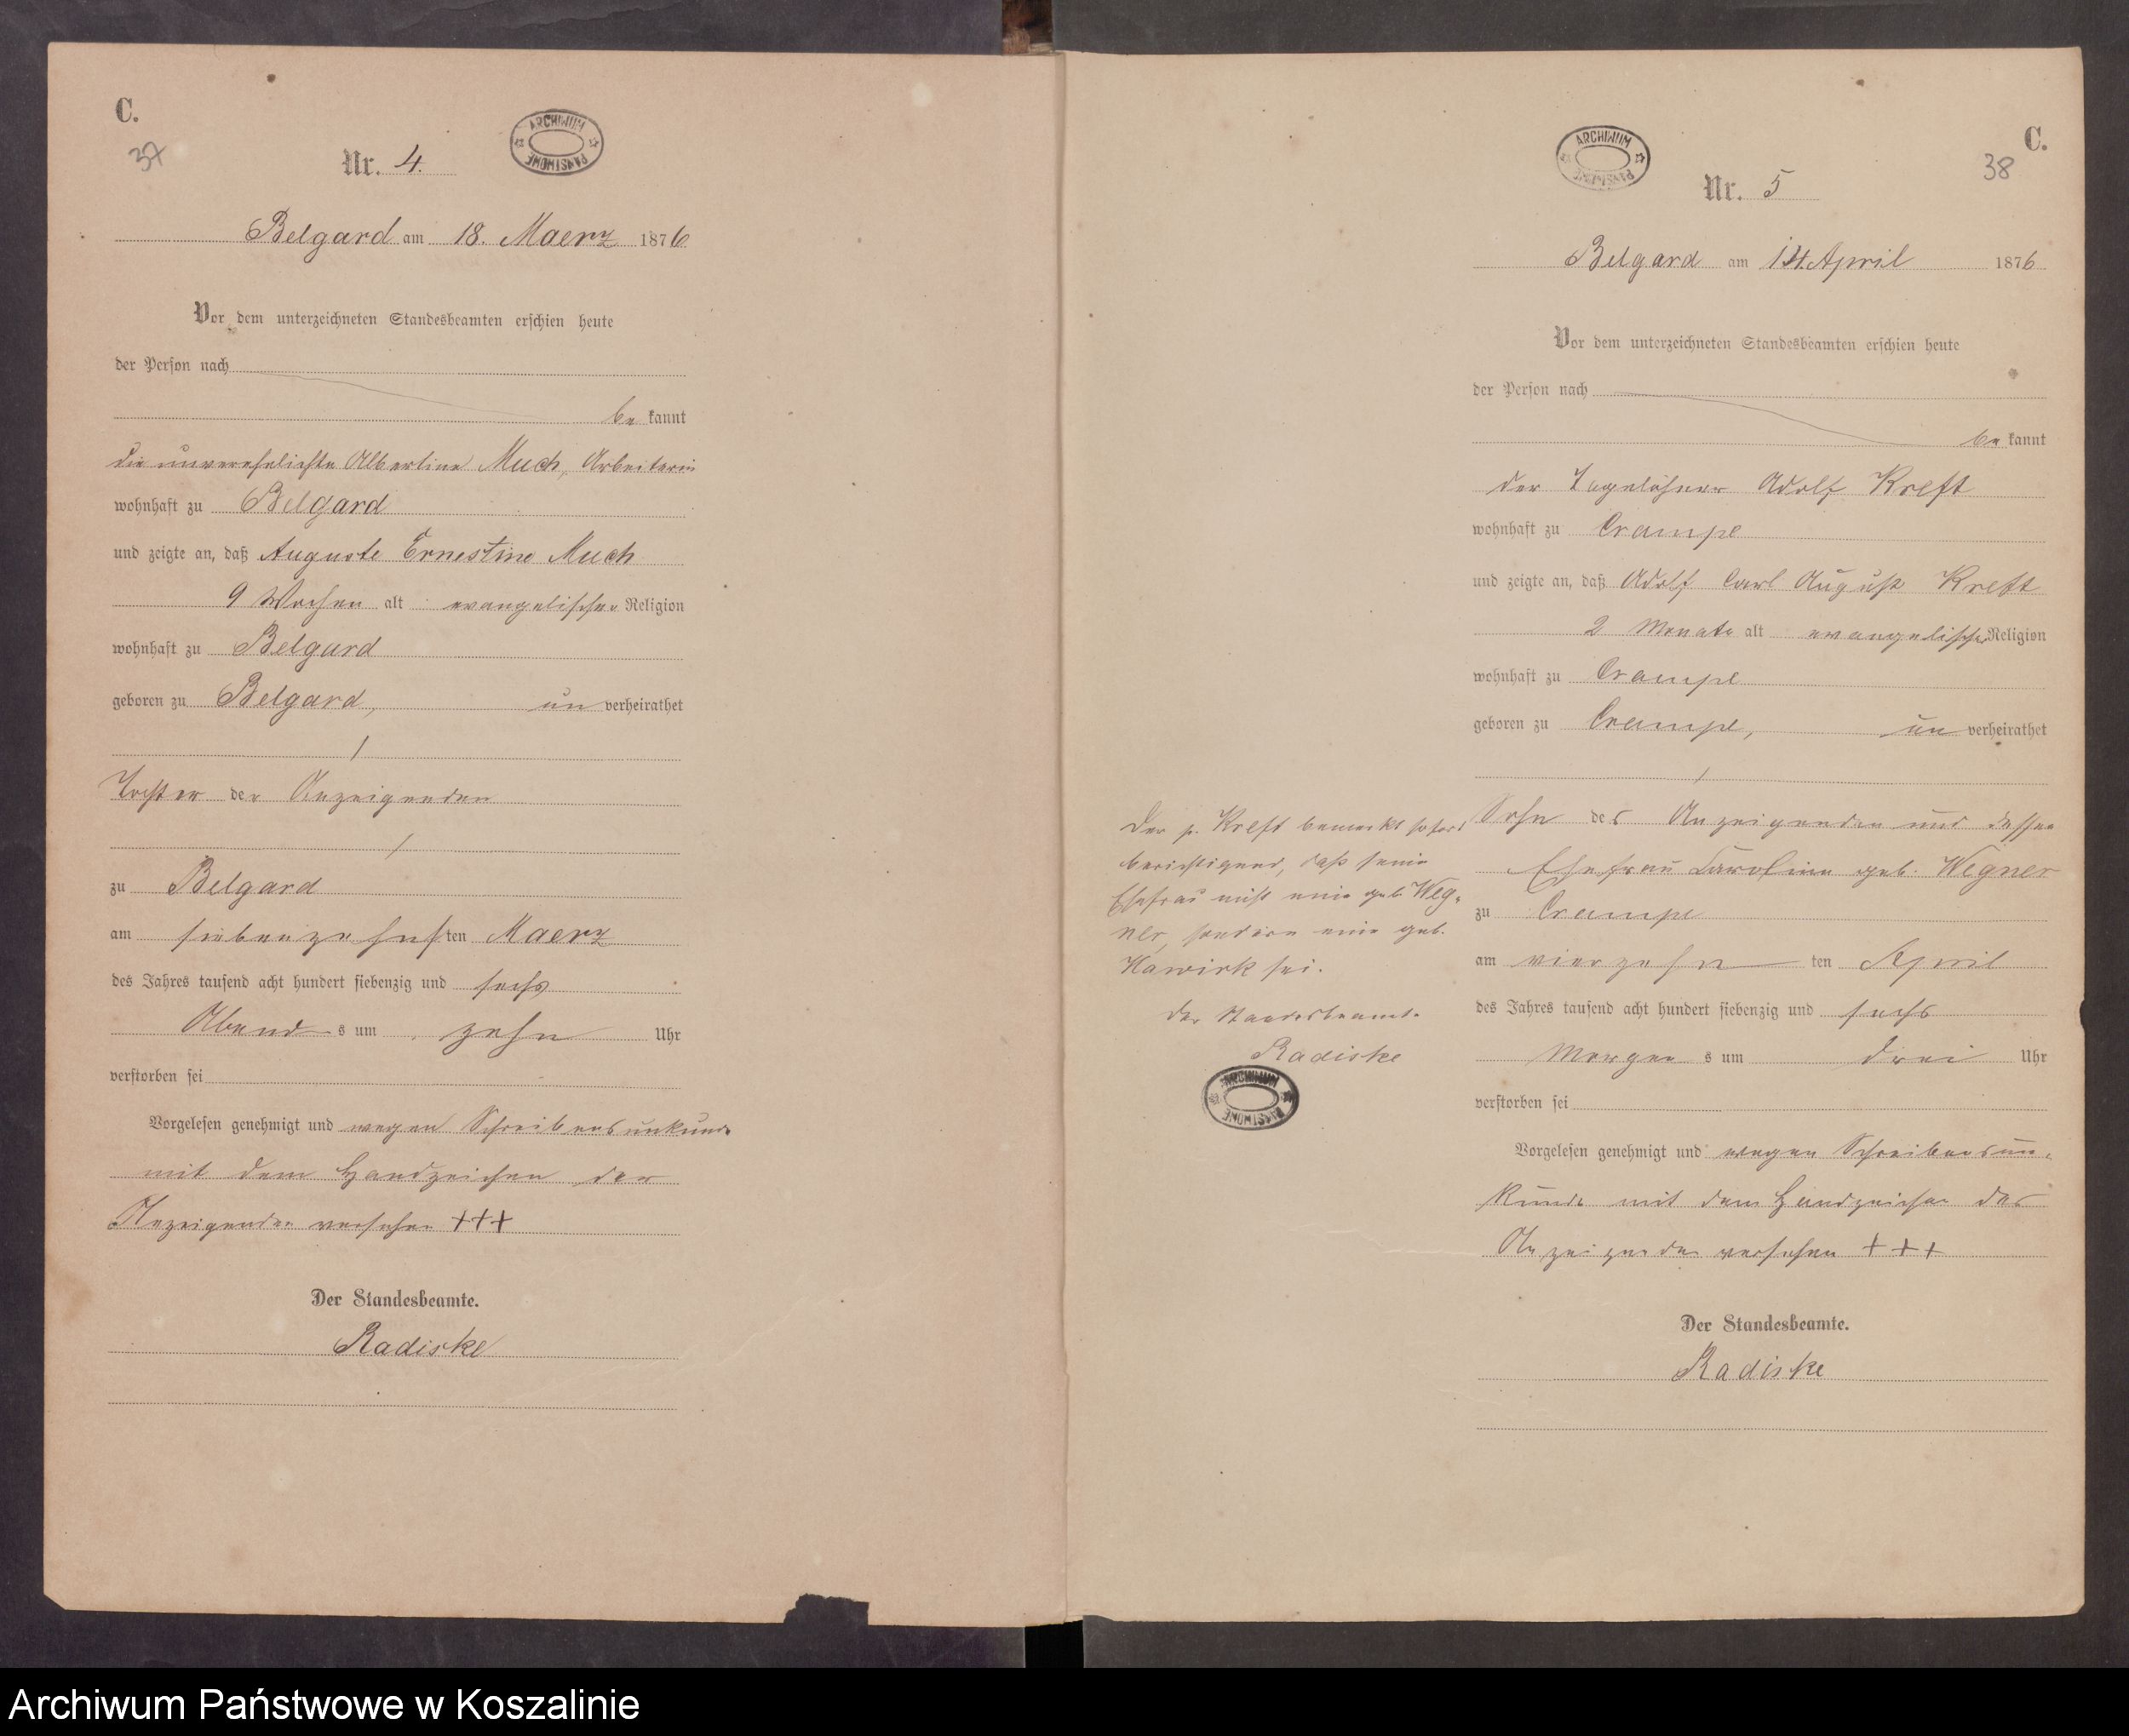 C.
37
ARCHIWUM PAŃSTWOWE
Nr. 4.
Belgard am 18. Maerz 1876
Vor dem unterzeichneten Standesbeamten erschien heute
der Person nach
be kannt
die unverehelichte Albertine Much, Arbeiterin
wohnhaft zu Belgard
und zeigte an, daß Auguste Ernestine Much
9 Wochen alt evangelischer Religion
wohnhaft zu Belgard
geboren zu Belgard, un verheirathet
Tochter der Anzeigenden
zu Belgard
am siebenzehnten Maerz
des Jahres tausend acht hundert siebenzig und sechs
Abend s um zehn Uhr
verstorben sei
Vorgelesen genehmigt und wegen Schreibensunkunde
mit dem Handzeichen der
Anzeigenden versehen +++
Der Standesbeamte.
Radiske
C.
38
ARCHIWUM PAŃSTWOWE
Nr. 5
Belgard am 14. April 1876
Vor dem unterzeichneten Standesbeamten erschien heute
der Person nach
be kannt
der Tagelöhner Adolf Kreft
wohnhaft zu Crampe
und zeigte an, daß Adolf Carl August Kreft
2 Monate alt evangelischer Religion
wohnhaft zu Crampe
geboren zu Crampe, un verheirathet
Sohn des Anzeigenden und dessen
Ehefrau Caroline geb. Wegner
zu Crampe
am vierzehn ten April
des Jahres tausend acht hundert siebenzig und sechs
Morgen s um drei Uhr
verstorben sei
Vorgelesen genehmigt und wegen Schreibensun-
kunde mit dem Handzeichen des
Anzeigenden versehen +++
Der Standesbeamte.
Radiske
Der p. Kreft bemerkt sofort
berichtigend, daß seine
Ehefrau nicht eine geb. Weg-
ner, sondern eine geb.
sei.
Der Standesbeamte
Radiske
ARCHIWUM PAŃSTWOWE
Archiwum Państwowe w Koszalinie